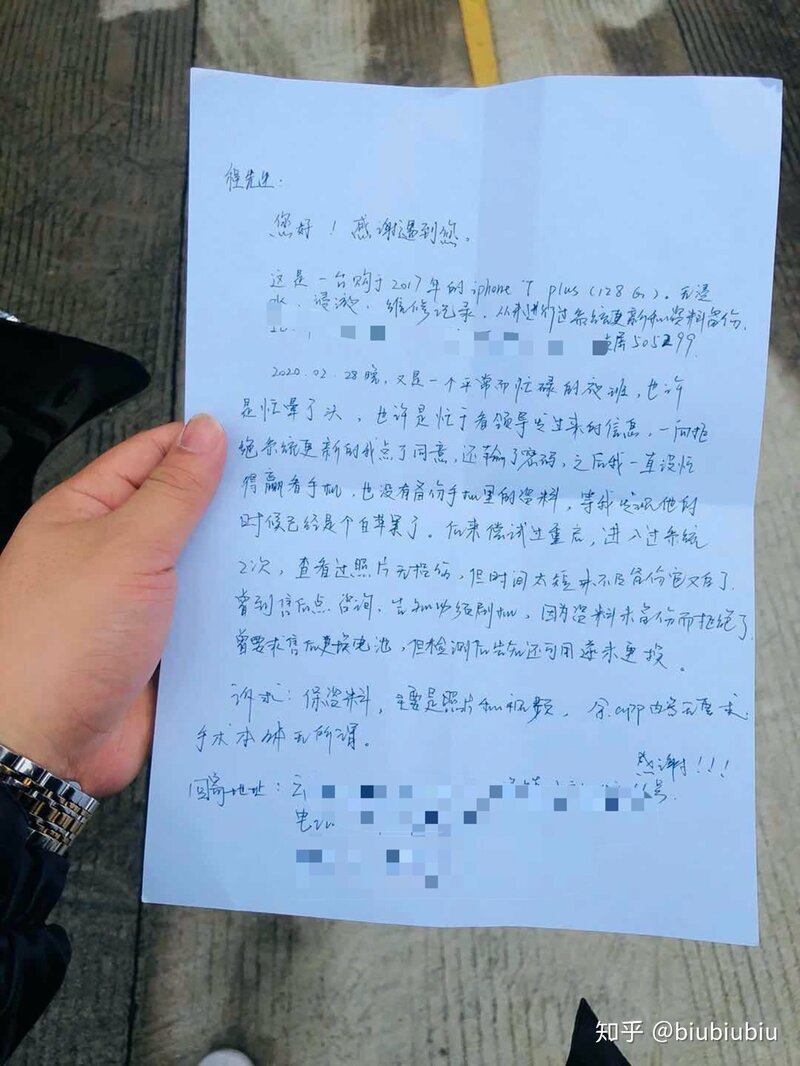 先生:
您好！感谢遇到您。
这是一台购于2017年的iphone 7 plus(128G)。无浸
水、浸液、维修记录，从未进行过系统更新和资料备份，
505299
2020.02.28晚，又是一个平常而忙碌的夜班，也许
是忙晕了头，也许是忙于看领导发过来的信息，一向拒
绝系统更新的我点了同意，还输了密码，之后我一直没忙
得赢看手机，也没有备份手机里的资料，等我发现他的
时候已经是个白苹果了。后来尝试过重启，进入过系统
2次，查看过照片无损伤，但时间太短来不及备份它又白了。
曾到售后点咨询，告知必须刷机，因为资料未备份而拒绝了。
曾要求售后更换电池，但检测后告知还可用遂未更换。
诉求：保资料，主要是照片和视频，余app内容无要求，
手机本体无所谓。
感谢!!!
回寄地址：云 号
电
知乎 @biubiubiu